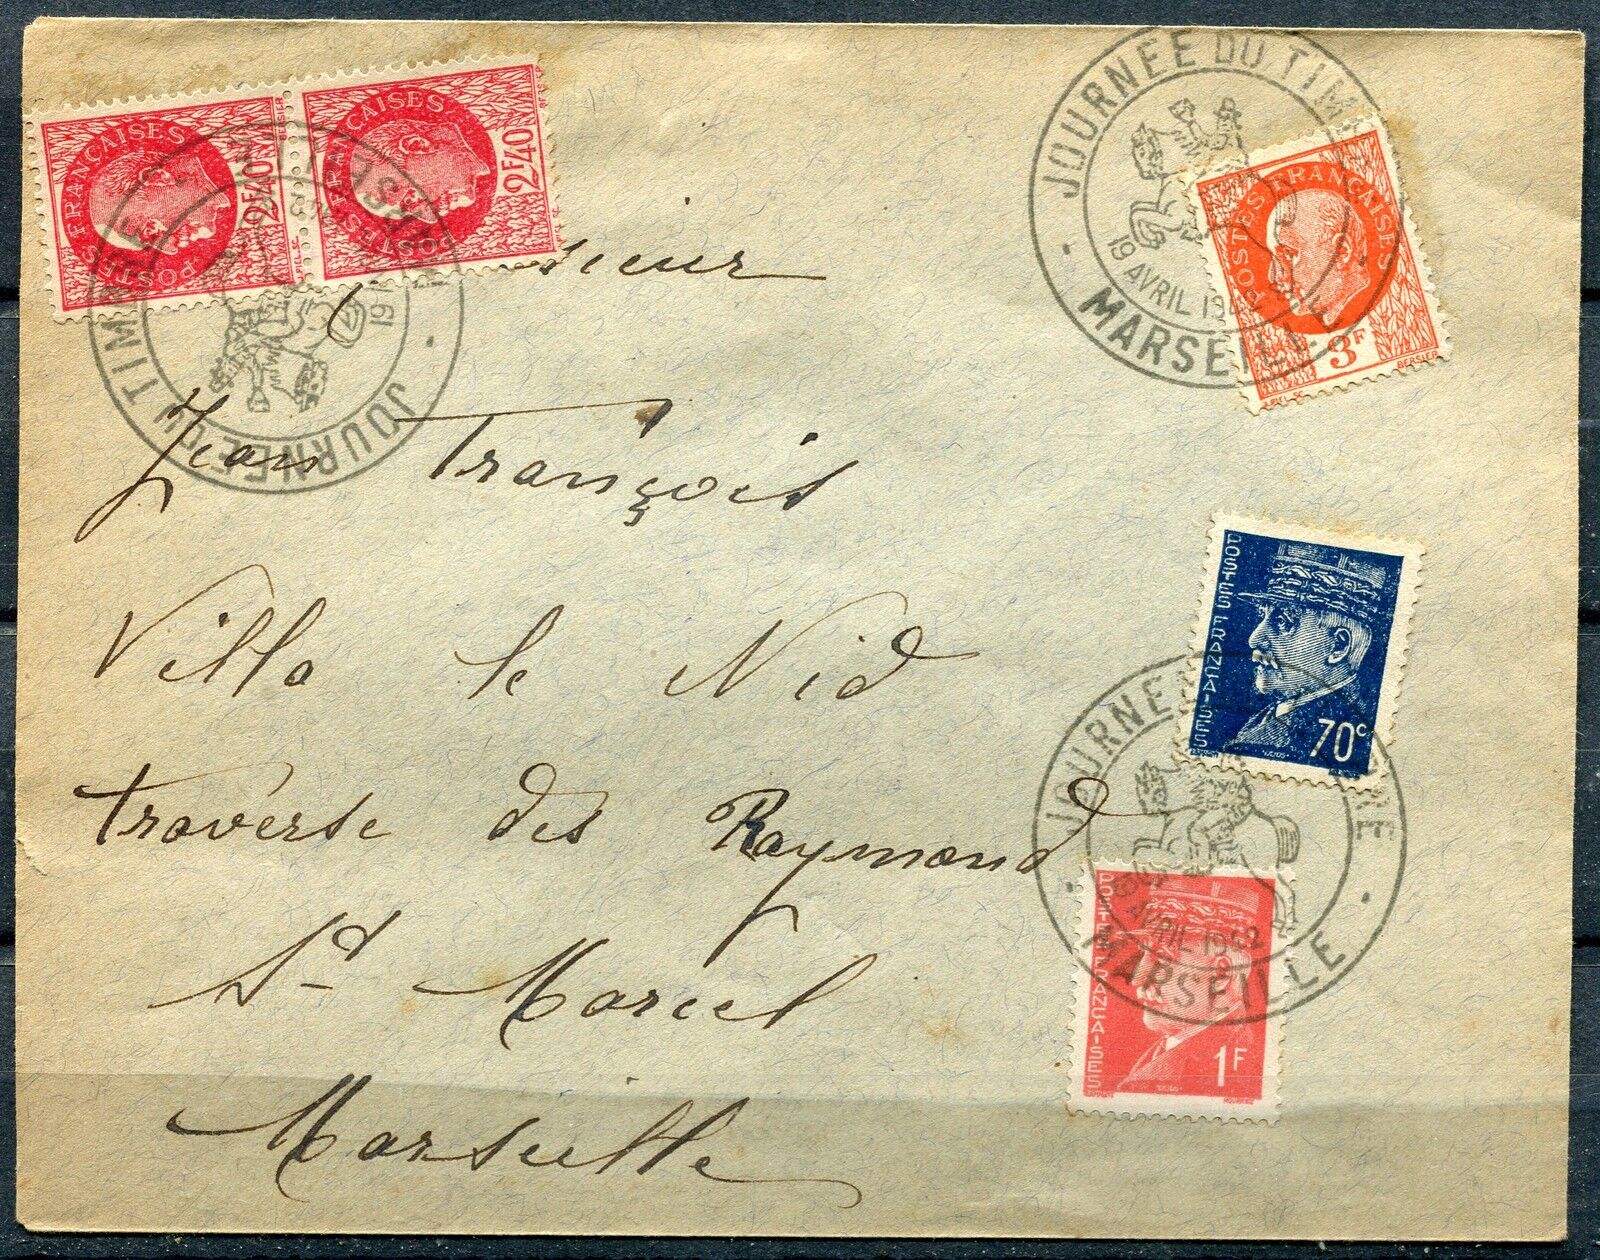 POSTES FRANÇAISES
2F40
BERSIER
PIEL SC.
POSTES FRANÇAISES
2F40
BERSIER
JOURNÉE DU TIMBRE
MARSEILLE
JOURNÉE DU TIM
19 AVRIL 1942
MARSEILLE
POSTES FRANÇAISES
3F
PIEL SC.
BERSIER
sieur
Jean François
Villa le Nid
traverse des Raymond
St Marcel
Marseille
POSTES FRANÇAISES
70c
JOURNÉE RE
19 AVRIL 1942
MARSEILLE
POSTES FRANÇAISES
1F